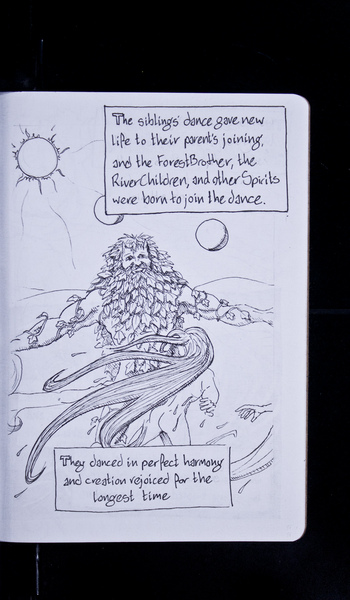 The siblings' dance gave new
life to their parent's joining,
and the ForestBrother, the
RiverChildren, and other Spirits
were born to join the dance.
They danced in perfect harmony
and creation rejoiced for the
longest time